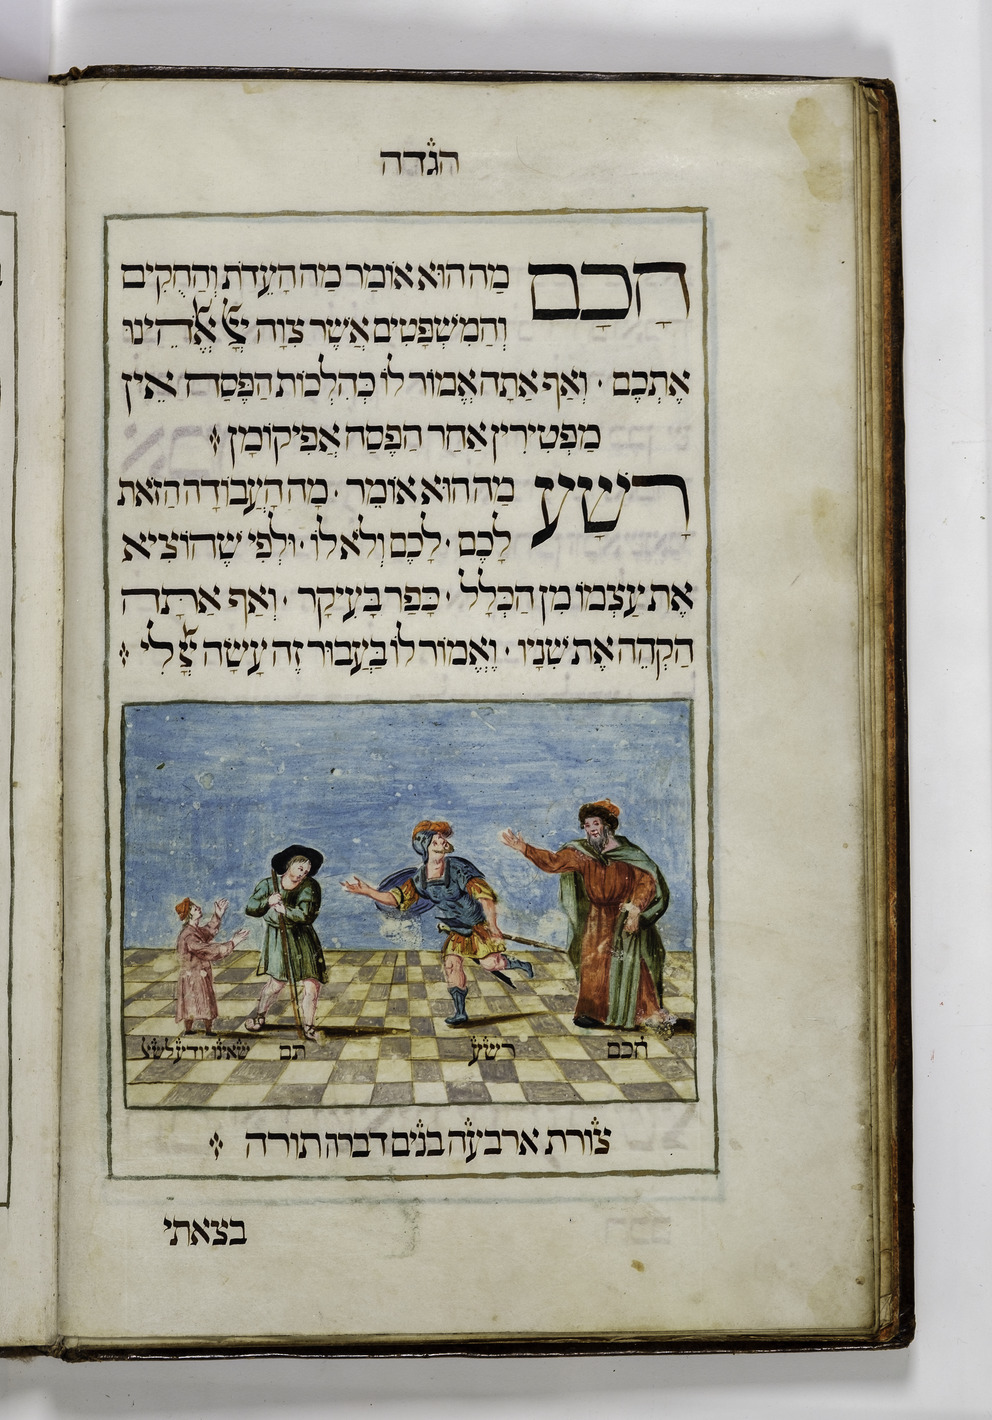 הגדה
חָכָם מַה הוּא אוֹמֵר מַה הָעֵדֹת וְהַחֻקִּים
וְהַמִשְׁפָּטִים אֲשֶׁר צִוָּה יְיָ אֱלֹהֵינוּ
אֶתְכֶם · וְאַף אַתָּה אֱמוֹר לוֹ כְּהִלְכוֹת הַפֶּסַח אֵין
מַפְטִירִין אַחַר הַפֶּסַח אֲפִיקוֹמָן
רָשָׁע מַה הוּא אוֹמֵר · מָה הָעֲבוֹדָה הַזֹּאת
לָכֶם · לָכֶם וְלֹא לוֹ · וּלְפִי שֶׁהוֹצִיא
אֶת עַצְמוֹ מִן הַכְּלָל · כָּפַר בָּעִיקָר · וְאַף אַתָּה
הַקְהֵה אֶת שִׁנָּיו · וֶאֱמוֹר לוֹ בַּעֲבוּר זֶה עָשָׂה יְיָ לִי
חכם רשע תם שאינו יודע לשא
צורת ארבעה בנים דברה תורה
בצאתי